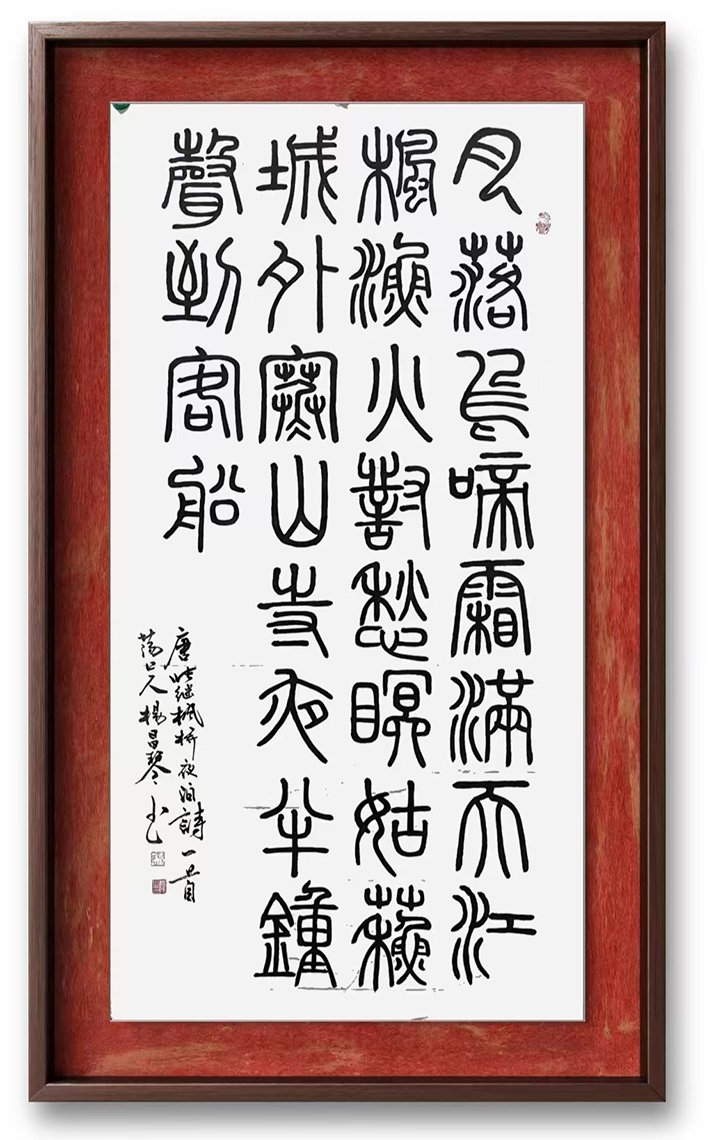 月落烏啼霜滿天江
楓漁火對愁瞑姑蘇
城外寒山寺夜半鍾
聲到客船
唐张继枫桥夜泊詩一首
蕩口人楊昌琴书